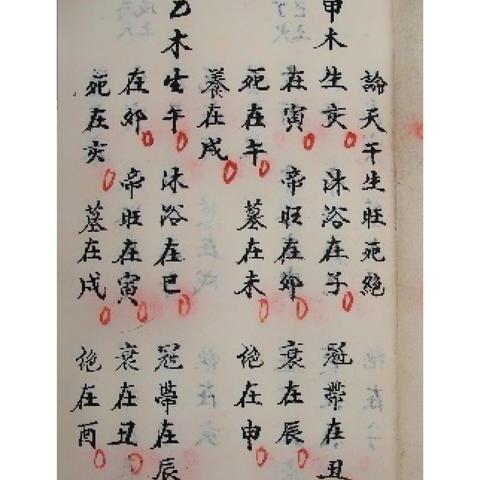 論天干生旺死絶
甲木生亥沐浴在子冠帶在丑
在寅帝旺在卯衰在辰
死在午墓在未絶在申
養在戌
乙木生午沐浴在巳冠帶在辰
在卯帝旺在寅衰在丑
死在亥墓在戌絶在酉